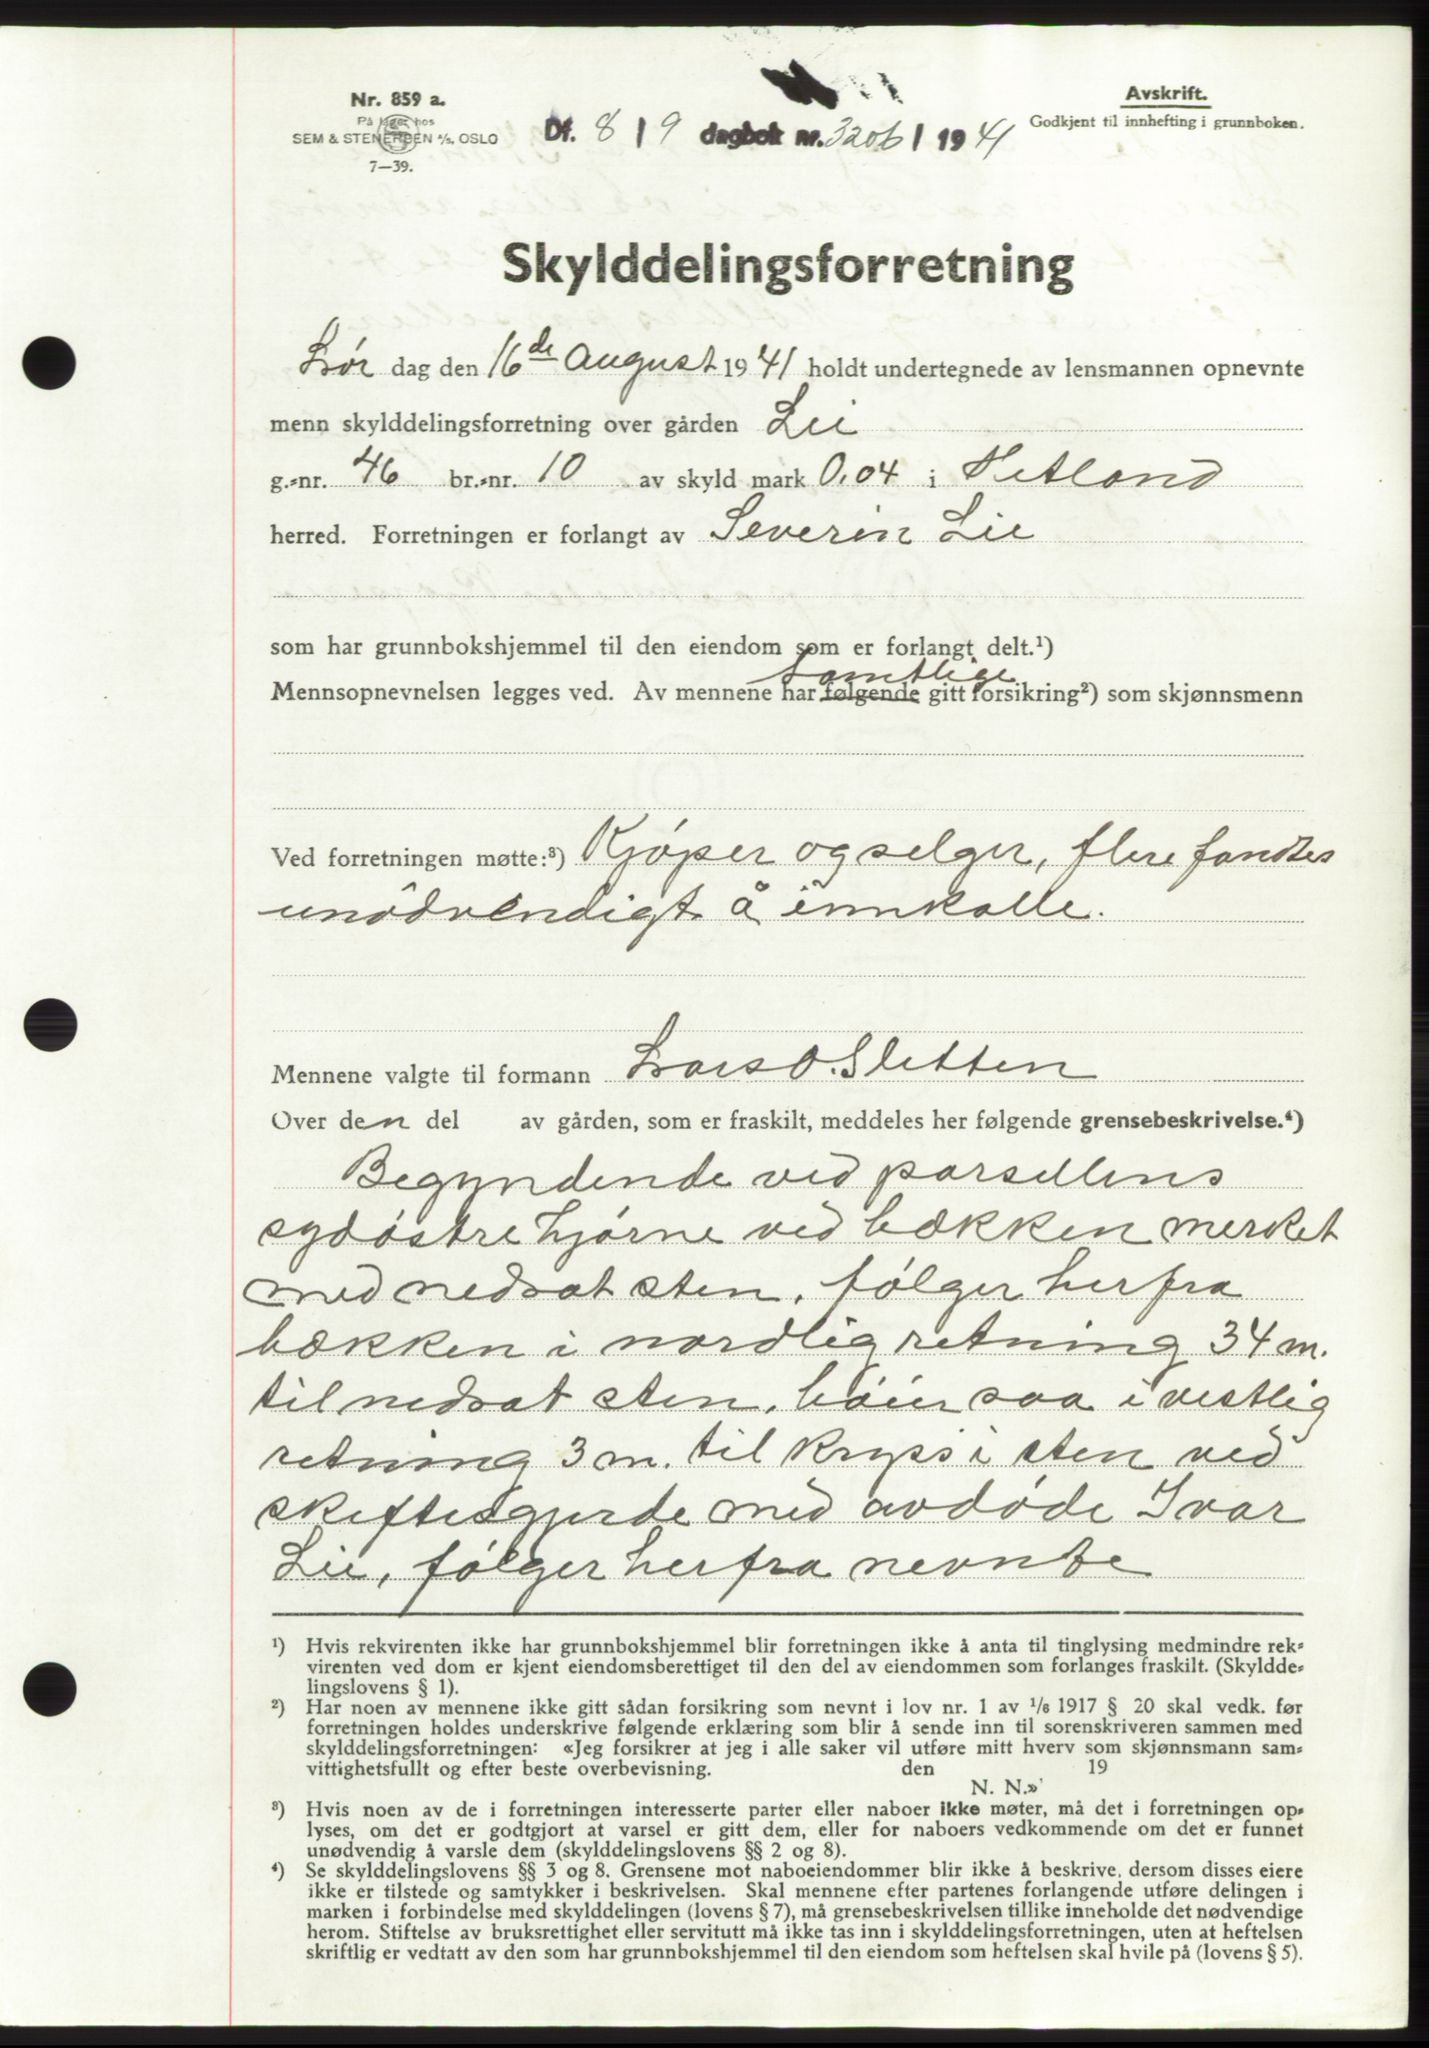 Nr. 859 a.
På lager hos
SEM & STENERSEN A/S, OSLO
7—39.
Df. 8 / 9 dagbok nr. 3206 / 19 41
Avskrift.
Godkjent til innhefting i grunnboken.
Skylddelingsforretning
Lør dag den 16de August 19 41 holdt undertegnede av lensmannen opnevnte
menn skylddelingsforretning over gården Lii
g.=nr. 46 br.=nr. 10 av skyld mark 0,04 i Hetland
herred. Forretningen er forlangt av Severin Lie
som har grunnbokshjemmel til den eiendom som er forlangt delt.¹)
samtlige
Mennsopnevnelsen legges ved. Av mennene har følgende gitt forsikring²) som skjønnsmenn
Ved forretningen møtte:³) Kjøper og selger, flere fandtes
unødvendigt å innkalle.
Mennene valgte til formann Lars O. Sletten
Over den del av gården, som er fraskilt, meddeles her følgende grensebeskrivelse.⁴)
Begyndende ved parsellens
sydøstre hjørne ved bækken merket
med nedsat sten, følger herfra
bækken i nordlig retning 34 m.
til nedsat sten, bøier saa i vestlig
retning 3 m. til kryss i sten ved
skiftesgjerde med avdøde Ivar
Lie, følger herfra nevnte
¹) Hvis rekvirenten ikke har grunnbokshjemmel blir forretningen ikke å anta til tinglysing medmindre rek=
virenten ved dom er kjent eiendomsberettiget til den del av eiendommen som forlanges fraskilt. (Skyldde=
lingslovens § 1).
²) Har noen av mennene ikke gitt sådan forsikring som nevnt i lov nr. 1 av 1/6 1917 § 20 skal vedk. før
forretningen holdes underskrive følgende erklæring som blir å sende inn til sorenskriveren sammen med
skylddelingsforretningen: «Jeg forsikrer at jeg i alle saker vil utføre mitt hverv som skjønnsmann sam=
vittighetsfullt og efter beste overbevisning. den 19
N. N.»
³) Hvis noen av de i forretningen interesserte parter eller naboer ikke møter, må det i forretningen op=
lyses, om det er godtgjort at varsel er gitt dem, eller for naboers vedkommende om det er funnet
unødvendig å varsle dem (skylddelingslovens §§ 2 og 8).
⁴) Se skylddelingslovens §§ 3 og 8. Grensene mot naboeiendommer blir ikke å beskrive, dersom disses eiere
ikke er tilstede og samtykker i beskrivelsen. Skal mennene efter partenes forlangende utføre delingen i
marken i forbindelse med skylddelingen (lovens § 7), må grensebeskrivelsen tillike inneholde det nødvendige
herom. Stiftelse av bruksrettighet eller servitutt må ikke tas inn i skylddelingsforretningen, uten at heftelsen
skriftlig er vedtatt av den som har grunnbokshjemmel til den eiendom som heftelsen skal hvile på (lovens § 5).